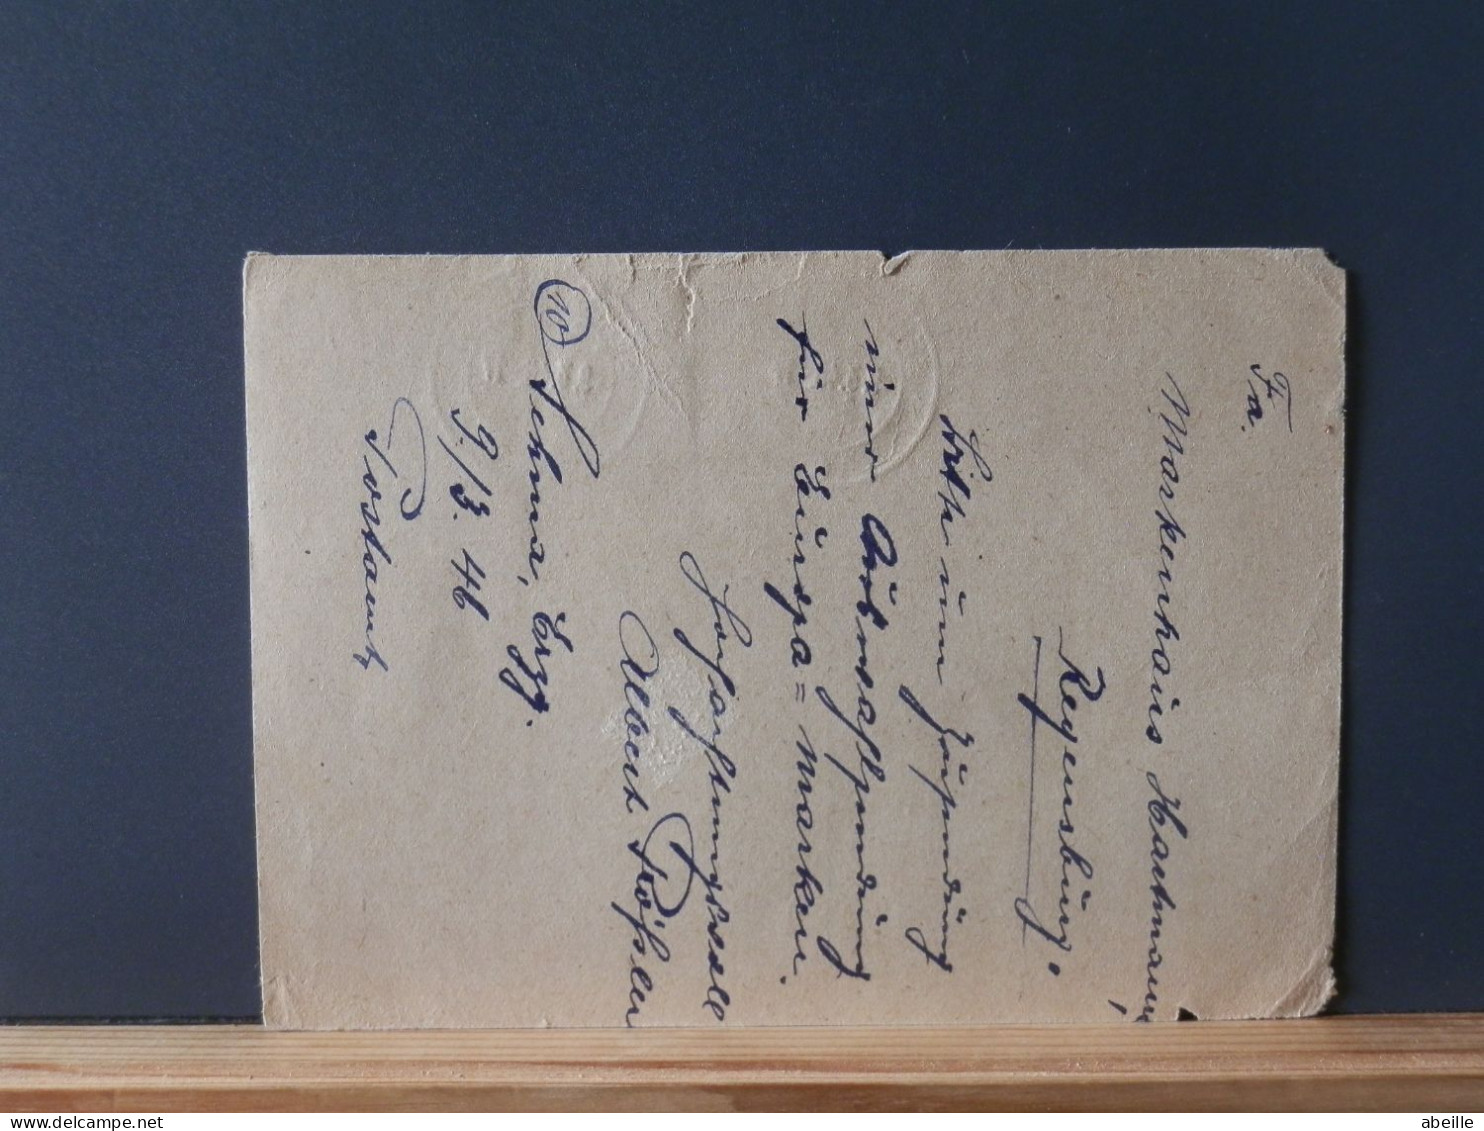 Fa.
Markenhaus Hartmann,
Regensburg.
Bitte um Zusendung
einer Auswahlsendung
für Europa = Marken.
Hochachtungsvoll
Albert Rößler
⑩ Sehma, Erzg.
9./3. 46
Postamt
delcampe.net
abeille